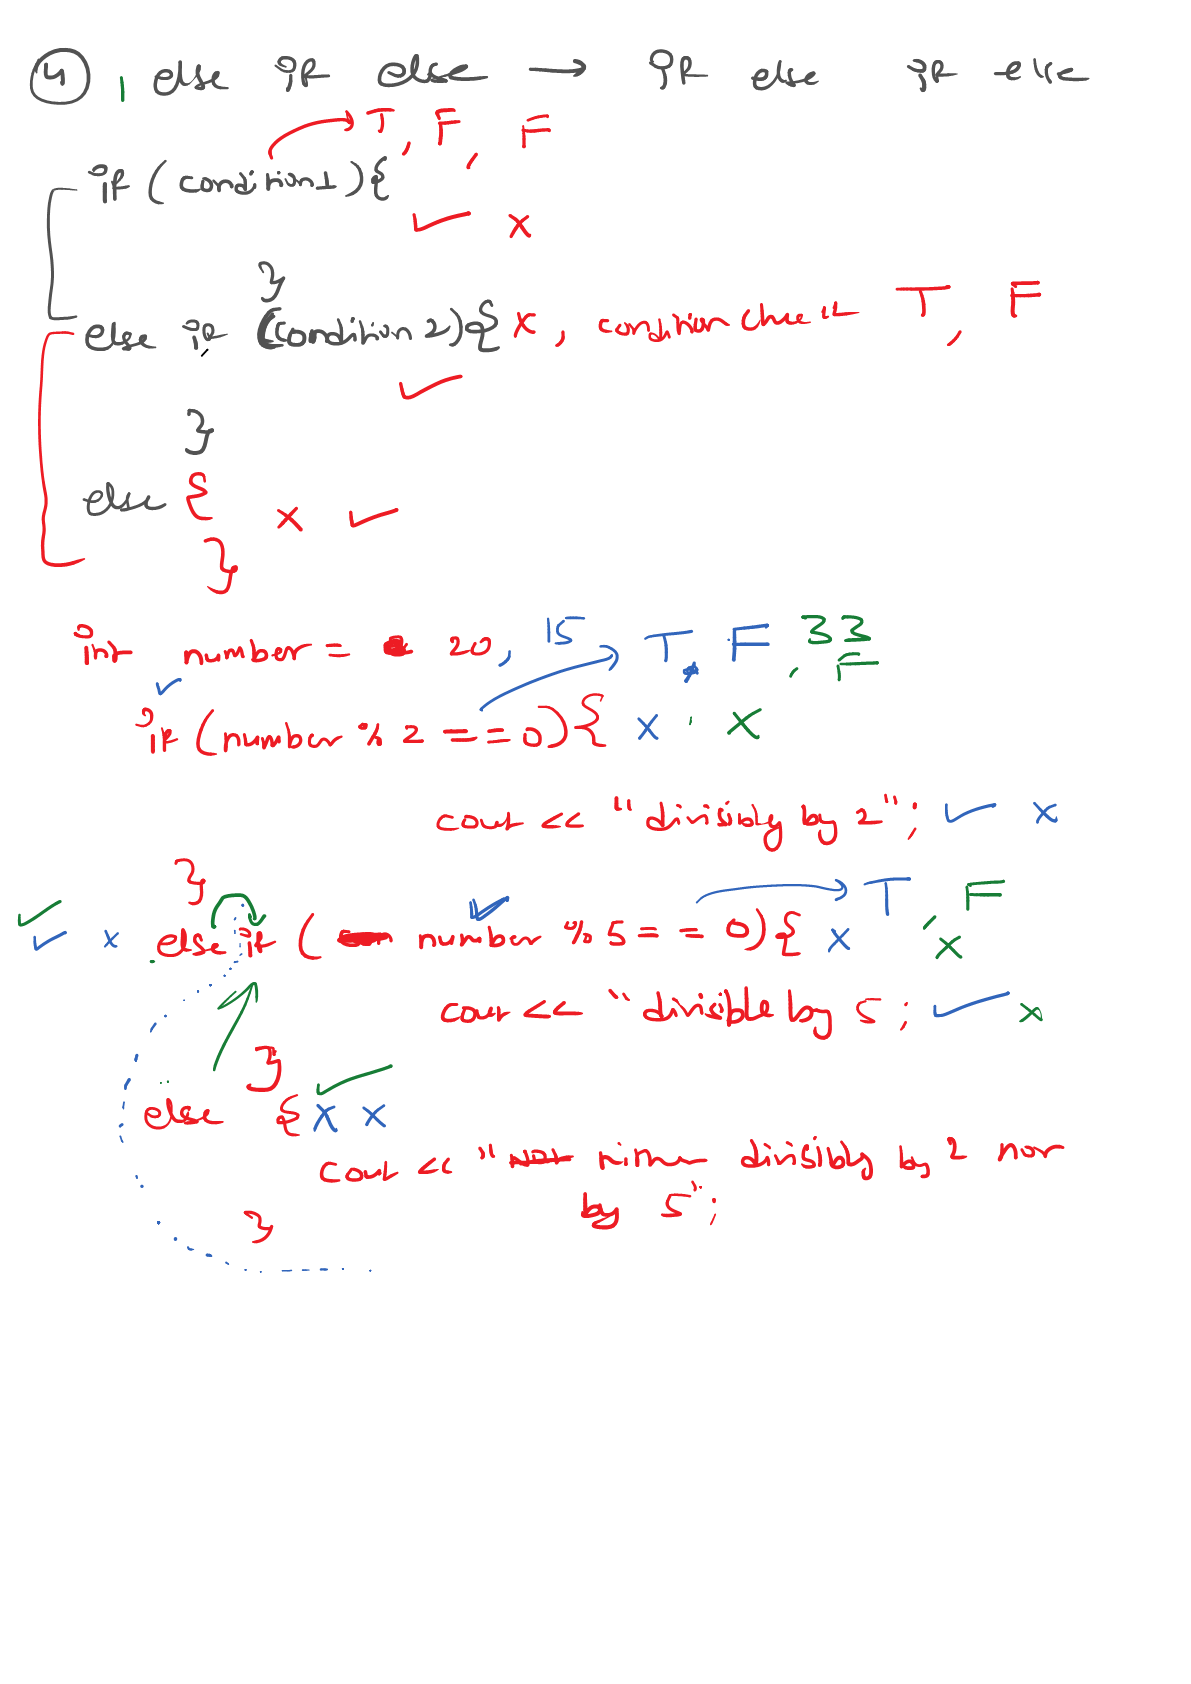 4 , else if else → if else if else
T, F, F
if ( condition 1 ) {
✓ x
}
else if (condition 2) { x , condition check T, F
✓
}
else {
x ✓
}
int number = 20, 15 T, F, 33 F
✓
if ( number % 2 == 0) { x x
cout << "divisibly by 2"; ✓ x
}
✓ ✓ x else if ( number % 5 == 0) { x T, F x
cout << "divisible by 5 ; ✓ x
}
else { x x ✓
cout << " divisibly by 2 nor
by 5";
}